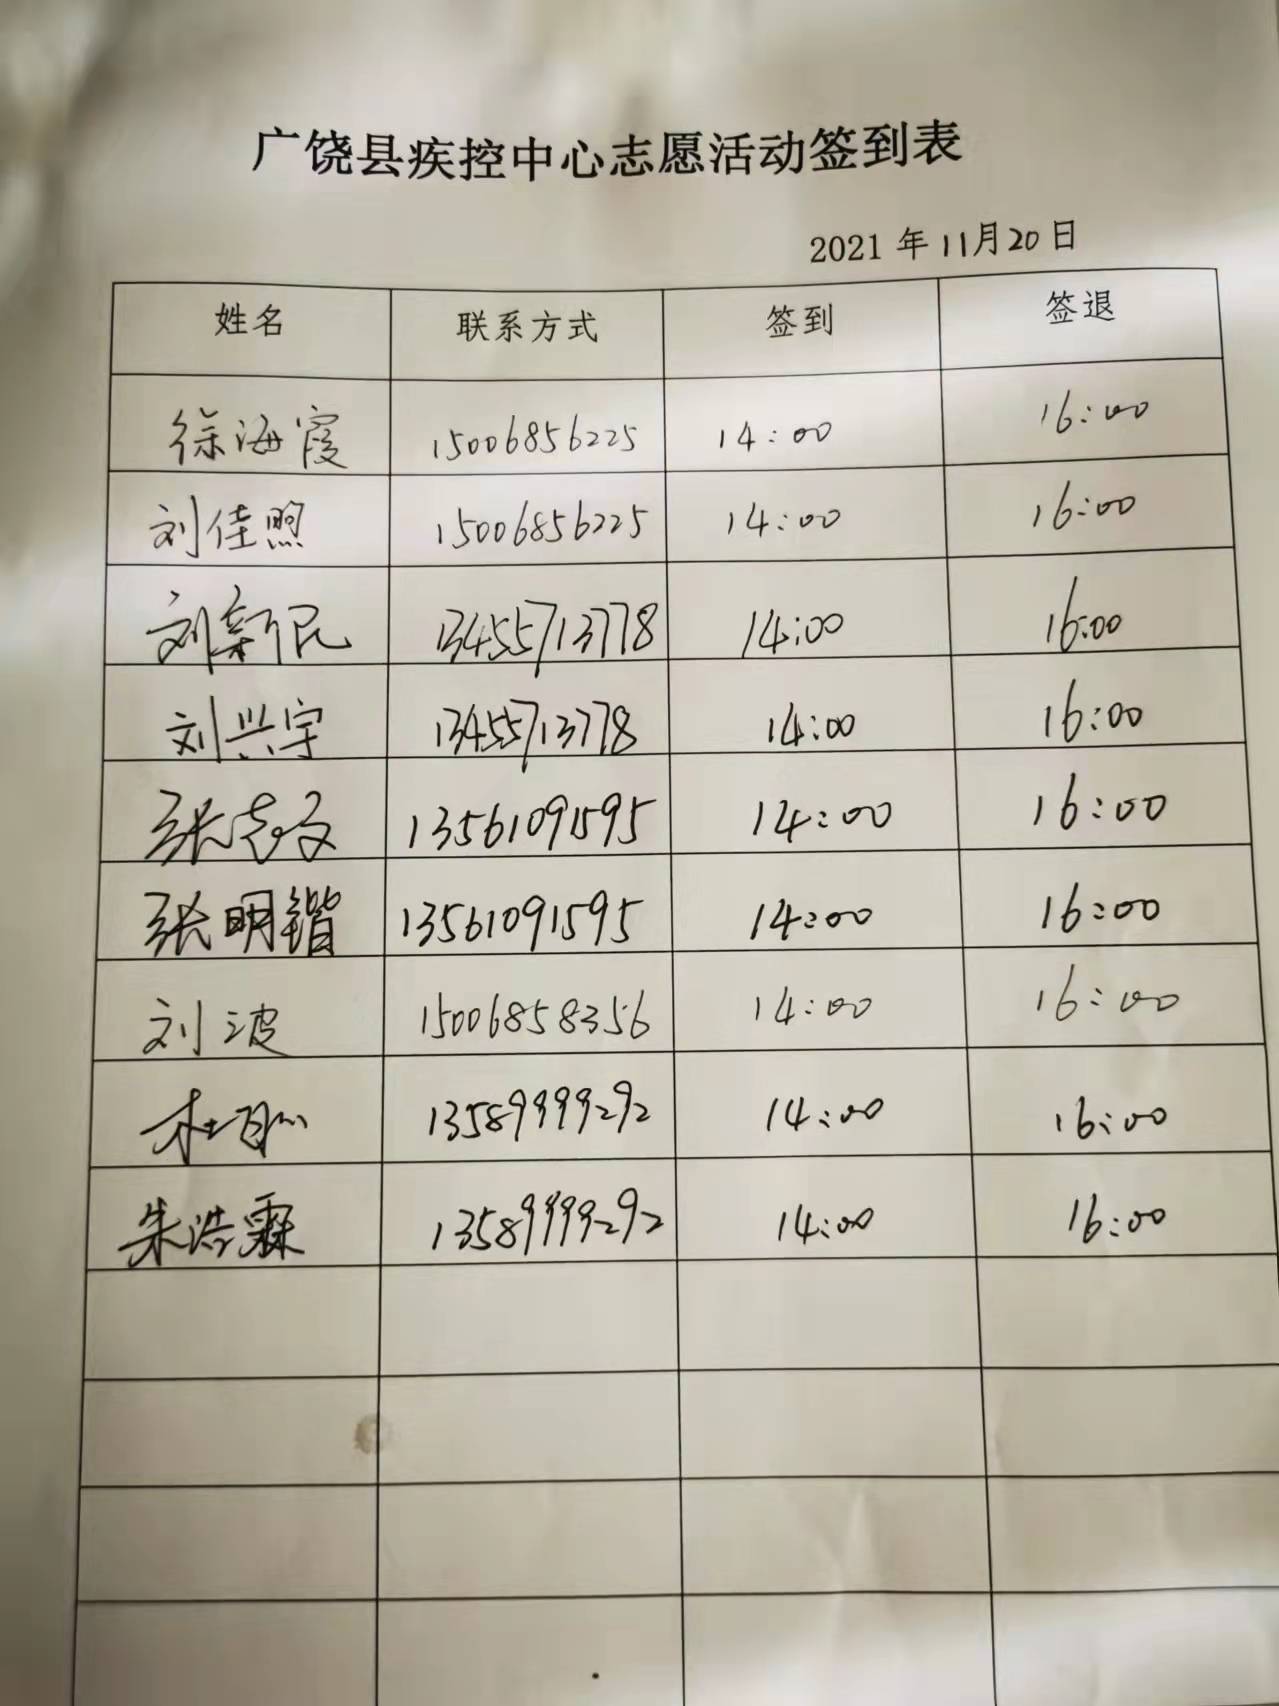 广饶县疾控中心志愿活动签到表
2021 年 11月20日
姓名 联系方式 签到 签退
徐海霞 15006856225 14:00 16:00
刘佳煦 15006856225 14:00 16:00
刘新民 13455713778 14:00 16:00
刘兴宇 13455713778 14:00 16:00
张志文 13561091595 14:00 16:00
张明锴 13561091595 14:00 16:00
刘波 15006858356 14:00 16:00
13589999292 14:00 16:00
朱浩霖 13589999292 14:00 16:00